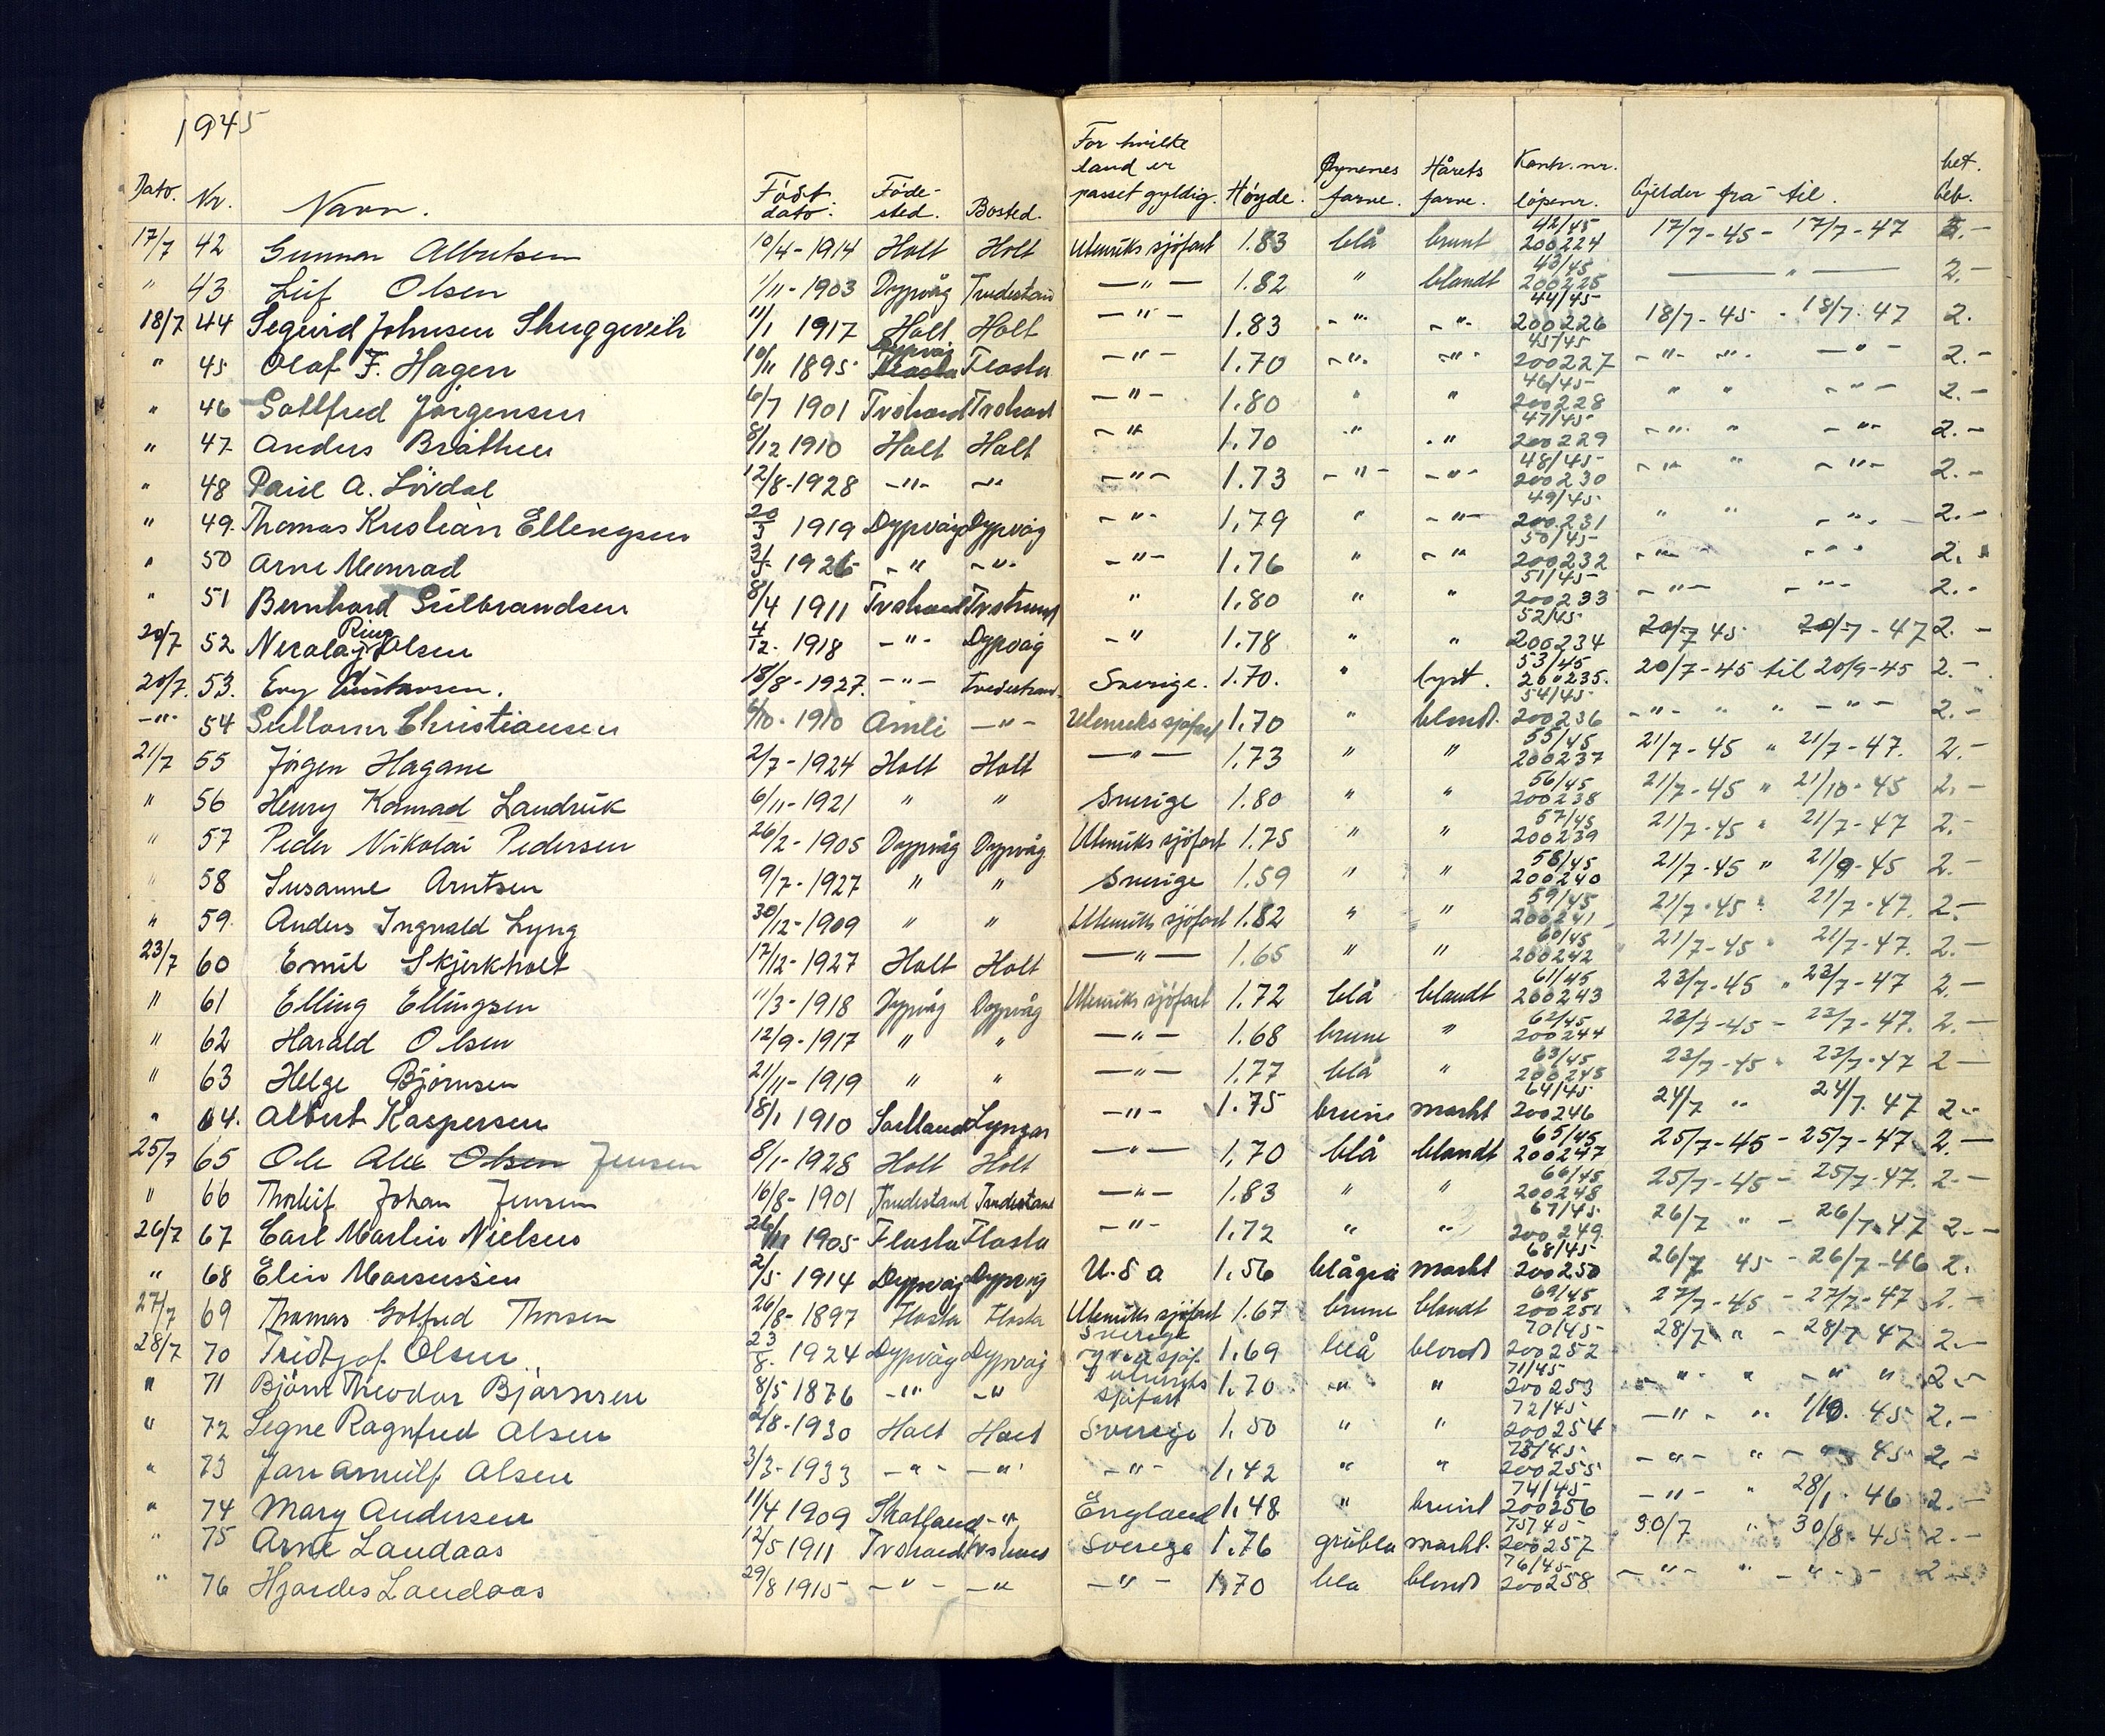 1945
Dato. Nr. Navn. Födt dato: Føde-sted. Bosted. For hvilke land er passet gyldig. Høyde. Øynenes farve. Hårets farve. Kontr. nr. löpenr. Gjelder fra - til. bet. beb.
17/7 42 Gunnar Albertsen 10/4-1914 Holt Holt Utenriks sjöfart 1.83 blå brunt 42/45 200224 17/7-45 - 17/7-47 2.-
" 43 Leif Olsen 1/11-1903 Dypvåg Tvedestand —"— 1.82 " blandt 43/45 200225 —"— 2.-
18/7 44 Segurd Johnsen 11/1 1917 Holt Holt —"— 1.83 -"- -"- 44/45 200226 18/7-45 - 18/7-47 2.
" 45 Olaf F. Hagen 10/11 1895 Dypvåg Flosta —"— 1.70 -"- -"- 45/45 200227 -"- -"- —"— 2.-
" 46 Gottfred Jörgensen 6/7 1901 Tvstrand Tvstrand —"— 1.80 " " 46/45 200228 " " -"- 2.-
" 47 Anders Bråthen 8/12 1910 Holt Holt -"- 1.70 " -"- 47/45 200229 -"- " -"- 2.-
" 48 Paul A. Lövdal 12/8-1928 -"- -"- -"- 1.73 -"- -"- 48/45 200230 -"- " -"- 2.-
" 49. Thomas Kristian Ellengsen 20/3 1919 Dypvåg Dypvåg -"- 1.79 " -"- 49/45 200231 " " -"- 2.-
" 50 Arne Monrad 3/5 1926 -"- -"- -"- 1.76 " -"- 50/45 200232 -"- -"- 2.
" 51 Bernhard Gulbrandsen 8/4 1911 Tvstrand Tvstrand " 1.80 " " 51/45 200233 -"- -"- 2.-
20/7 52 Nicolay Ring Olsen 4/12. 1918 -"- Dypvåg -" 1.78 " " 52/45 200234 20/7 45 20/7-47 2.-
20/7. 53. Evy Gustavsen. 18/8-1927. -"- Tvedestrand Sverige. 1.70. " lyst. 53/45 200235. 20/7-45 til 20/9-45 2.-
-"- 54 Guttorm Christiansen 6/10-1910 Åmli -"- Utenriks sjöfart 1.70 " blond. 54/45 200236 -"- " " -"- 2.-
21/7 55 Jörgen Hagane 2/7-1924 Holt Holt —"— 1.73 " " 55/45 200237 21/7-45 " 21/7-47. 2.-
" 56 Henry Konrad Landvik 6/11-1921 " " Sverige 1.80 " " 56/45 200238 21/7-45 " 21/10-45 2.-
" 57 Peder Nikolai Pedersen 26/2-1905 Dypvåg Dypvåg Utenriks sjöfart 1.75 " " 57/45 200239 21/7-45 " 21/7-47 2.-
" 58 Susanne Arntsen 9/7-1927 " " Sverige 1.59 " " 58/45 200240 21/7-45 " 21/9-45 2.-
" 59. Anders Ingvald Lyng 30/12-1909 " " Utenriks sjöfart 1.82 " " 59/45 200241 21/7-45 " 21/7-47. 2.-
23/7 60 Emil Skjerkholt 17/12-1927 Holt Holt —"— 1.65 " " 60/45 200242 21/7-45 " 21/7-47. 2.-
" 61 Elling Ellingsen 11/3-1918 Dypvåg Dypvåg Utenriks sjöfart 1.72 blå blandt 61/45 200243 23/7-45 " 23/7-47 2.-
" 62 Harald Olsen 12/9-1917 " " —"— 1.68 brune " 62/45 200244 23/7-45 - 23/7-47. 2.-
" 63 Helge Björnsen 21/11-1919 " " —"— 1.77 blå " 63/45 200245 23/7-45 " 23/7-47 2-
" 64. Albert Kaspersen 18/1 1910 Lyngør -"- 1.75 brune mørkt 64/45 200246 24/7 " 24/7. 47 2.-
25/7 65 Ole Alex Olsen Jensen 8/1-1928 Holt Holt —"— 1.70 blå blandt 65/45 200247 25/7-45 - 25/7-47 2.-
" 66 Thorleif Johan Jensen 16/8-1901 Tvedestand Tvedestand —"— 1.83 " " 66/45 200248 25/7-45 - 25/7-47. 2.-
26/7 67 Carl Martin Nielsen 26/11 1905 Flosta Flosta -"- 1.72 " " 67/45 200249 26/7 " - 26/7-47 2.-
" 68 Elin Marcussen 2/5 1914 Dypvåg Dypvåg U.S a 1.56 blågrå mørkt 68/45 200250 26/7 45 - 26/7-46 2.
27/7 69 Thomas Gotfred Thorsen 26/8-1897 Flosta Flosta Utenriks sjöfart 1.67 brune blandt 69/45 200251 27/7-45 - 27/7-47 2.-
28/7 70 Fridtjof Olsen 23/8. 1924 Dypvåg Dypvåg Sverige 1.69 blå blond 70/45 200252 28/7 " - 28/7 47 2.-
" 71 Björn Theodor Bjørnsen 8/5 1876 -"- -" utenriks sjöfart 1.70 -"- " 71/45 200253 -"- " -"- " 2.-
" 72 Segne Ragnfred Olsen 2/8-1930 Holt Holt Sverige 1.50 " " 72/45 200254 -"- " 1/10. 45 2.-
" 73 Jan Arnulf Olsen 3/3-1933 -"- -"- -"- 1.42 " " 73/45 200255 -"- " -"- 45 2.-
" 74 Mary Andersen 11/4 1909 -"- England 1.48 " brunt 74/45 200256 -"- " 28/1. 46 2.-
" 75 Arne Landaas 12/5 1911 Tvstrand Tvstrand Sverige 1.76 gråblå mørkt. 75/45 200257 30/7 " 30/8-45 2.-
" 76 Hjørdes Landaas 29/8 1915 -"- -"- -"- 1.70 blå blond 76/45 200258 -"- " -"- 2